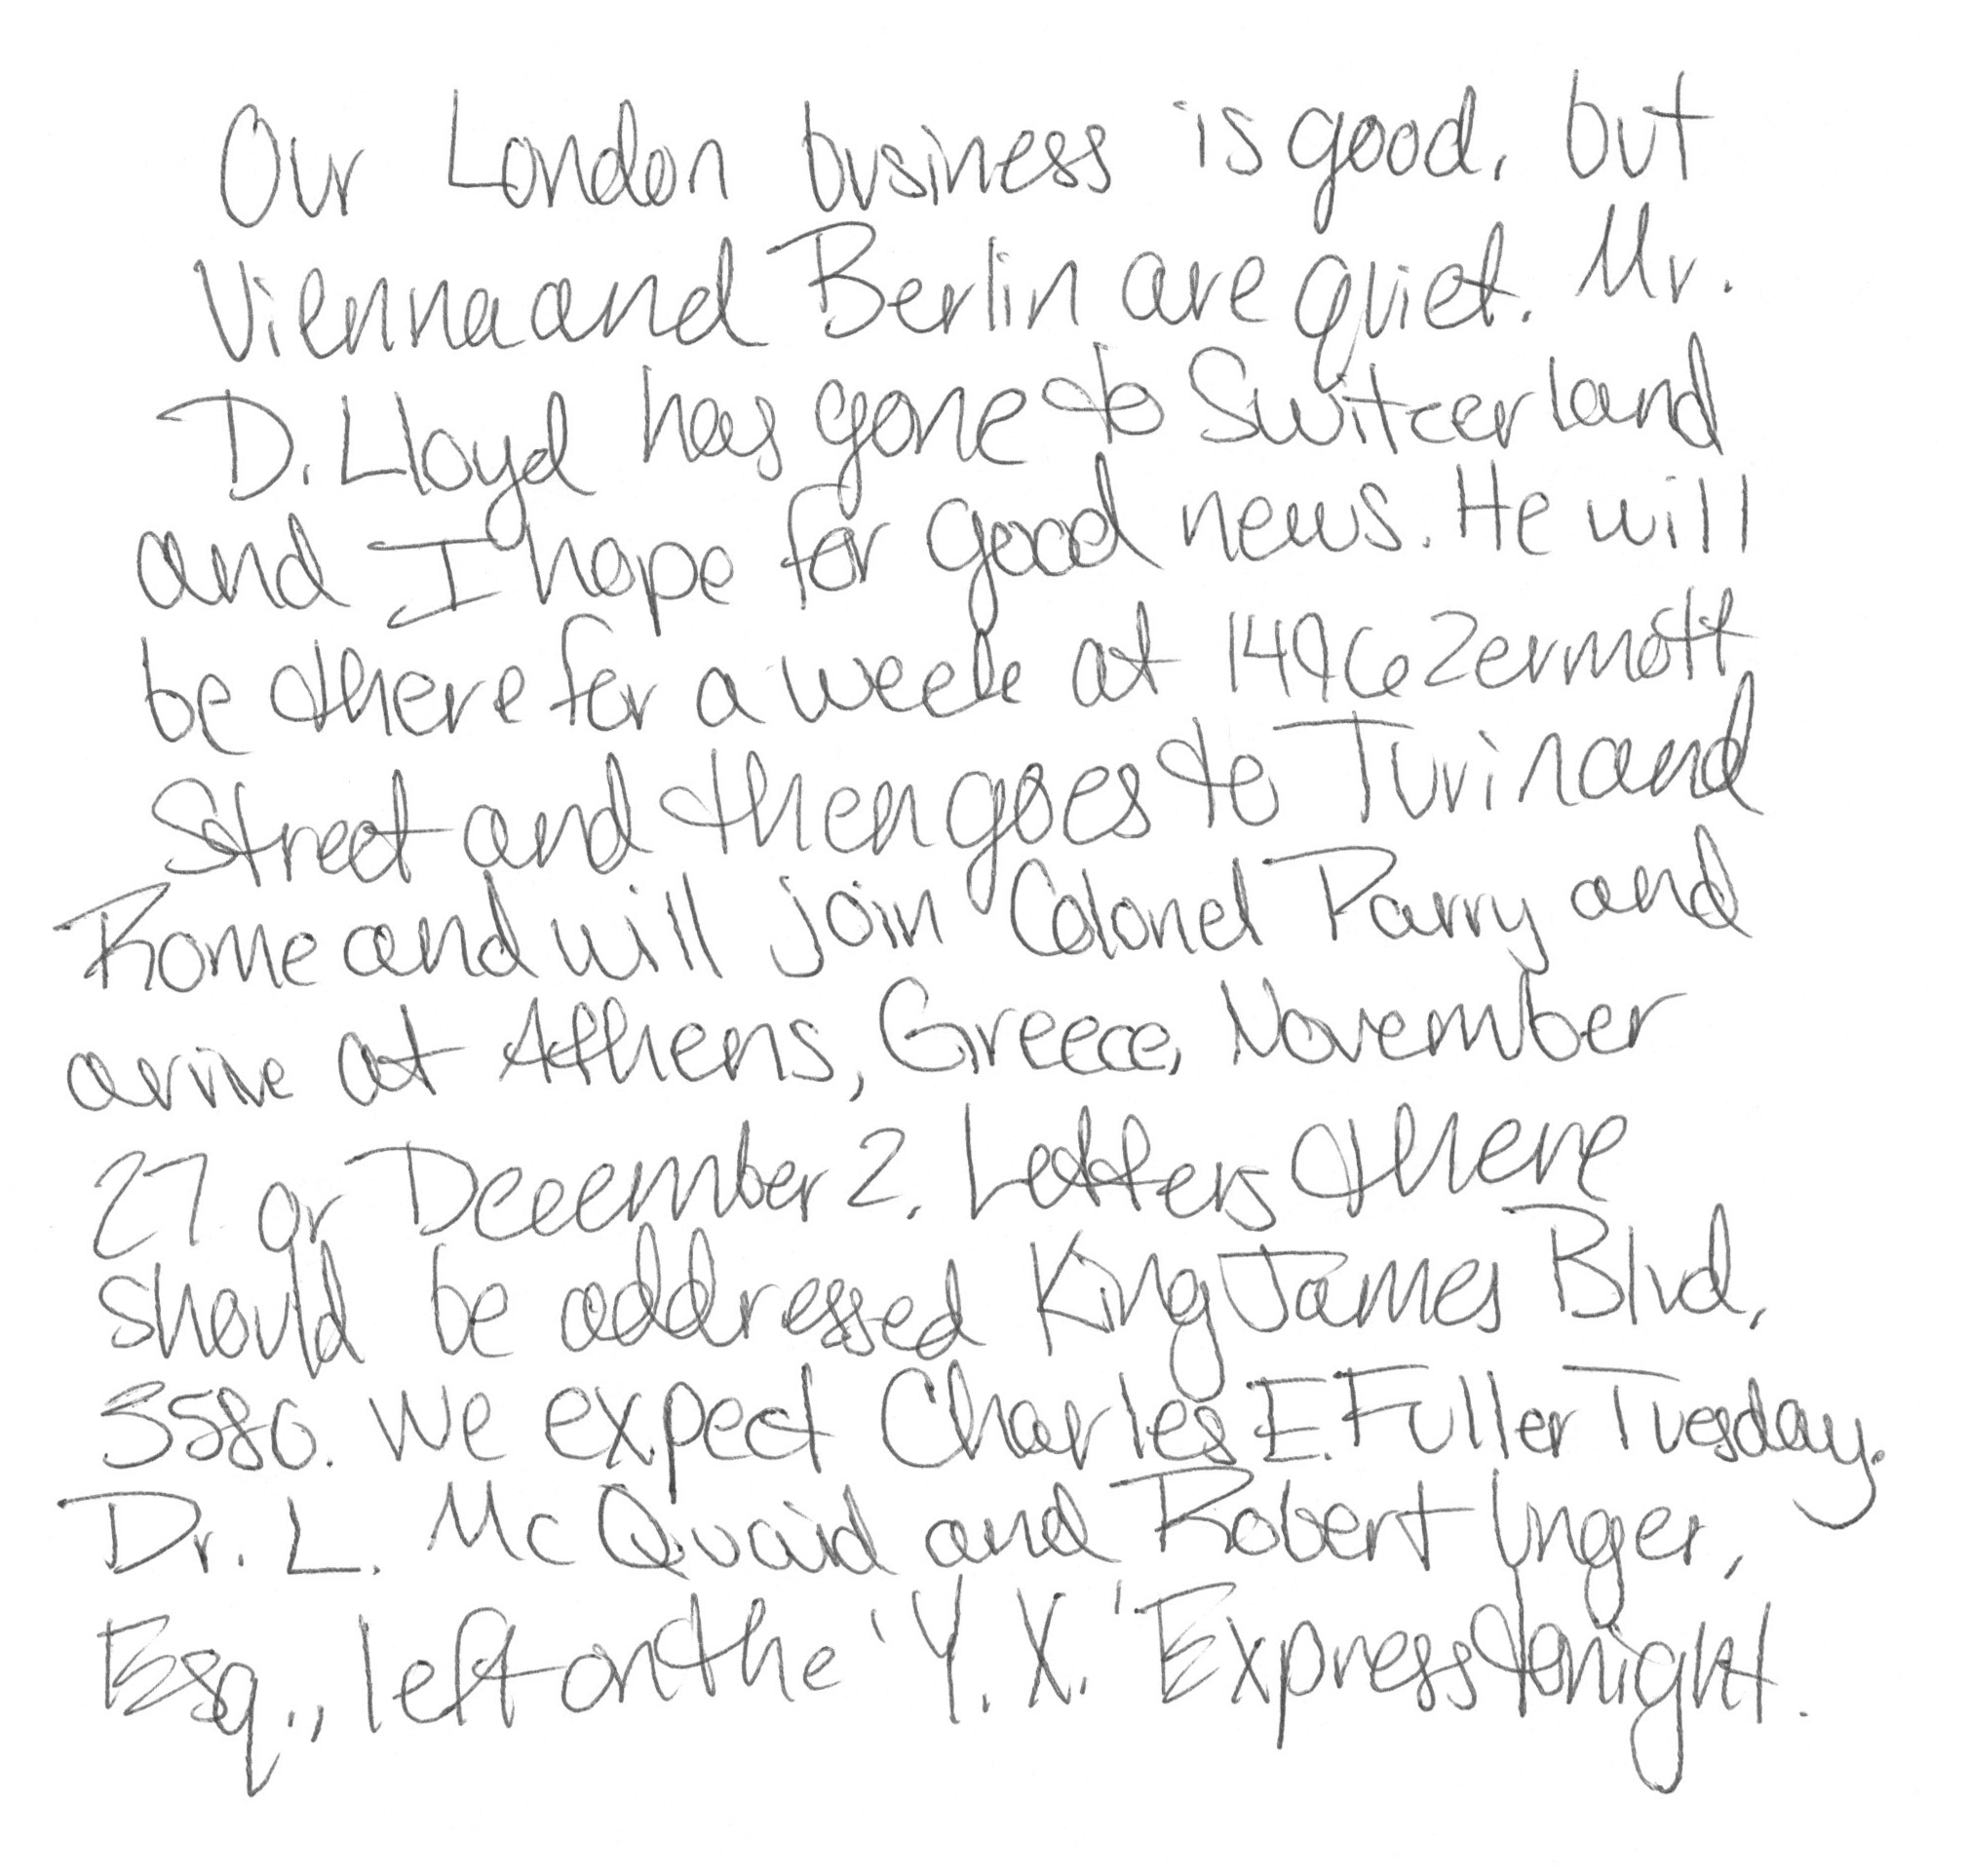 Our London business is good, but
Vienna and Berlin are quiet. Mr.
D. Lloyd has gone to Switzerland
and I hope for good news. He will
be there for a week at 1496 Zermott
Street and then goes to Turin and
Rome and will join Colonel Parry and
arrive at Athens, Greece, November
27 or December 2. Letters there
should be addressed King James Blvd.
3580. We expect Charles E. Fuller Tuesday.
Dr. L. McQuaid and Robert Unger,
Esq., left on the 'Y. X.' Express tonight.